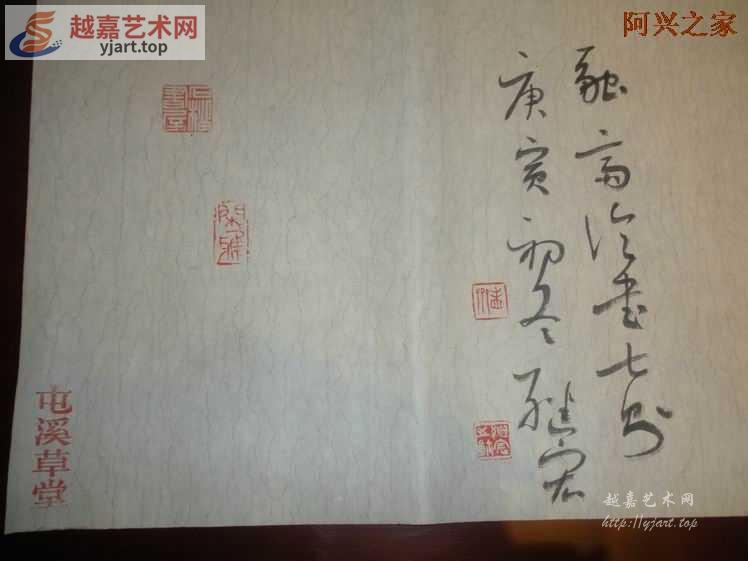 越嘉艺术网
yjart.top
阿兴之家
融斋论书七则
庚寅初冬继宏
屯溪草堂
越嘉艺术网
http://yjart.top